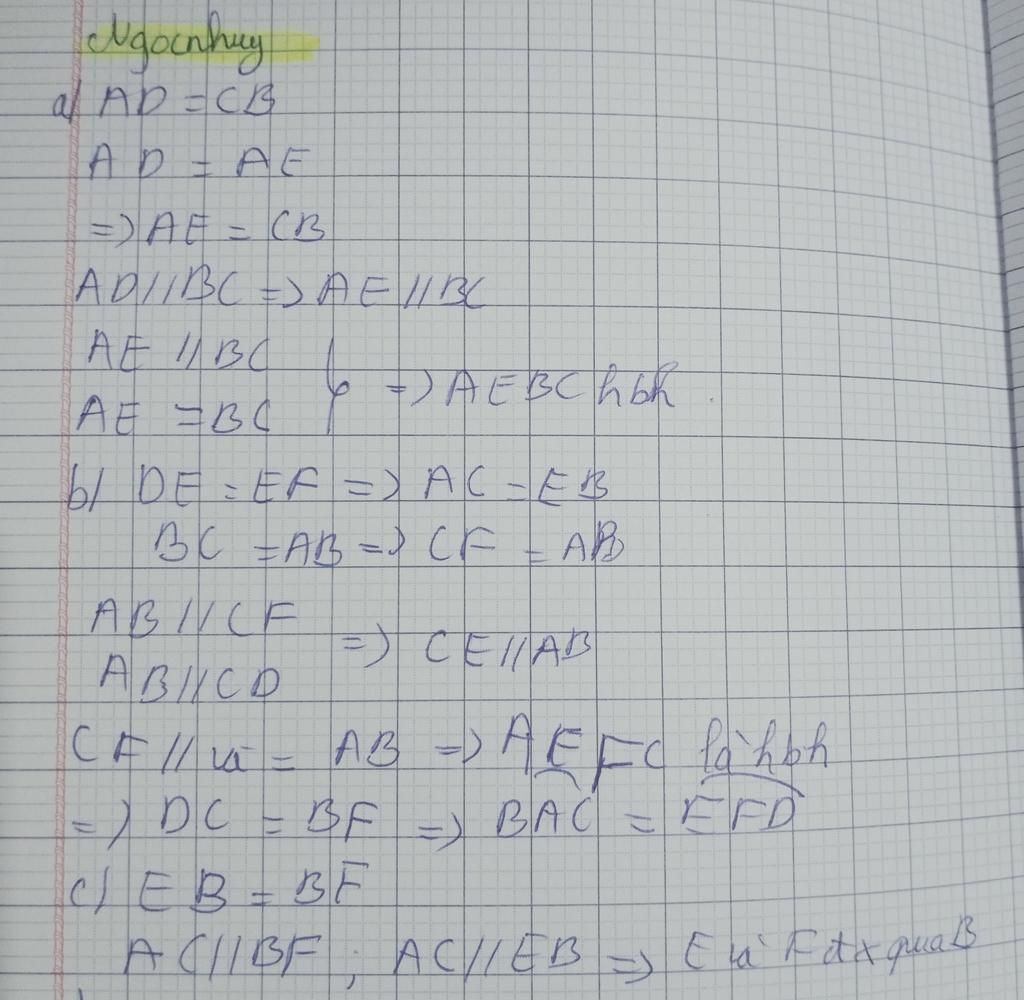 Ngocnhuy
a) AD = CB
AD = AE
=> AE = CB
AD//BC => AE//BC
AE //BC
AE = BC } => AEBC hbh.
b) DE = EF => AC = EB
BC = AB => CF = AB
AB//CF
AB//CD => CE//AB
CF// và = AB => AEFC là hbh
=> DC = BF => BAC = EFD
c) EB = BF
AC//BF ; AC//EB => E và F đx qua B